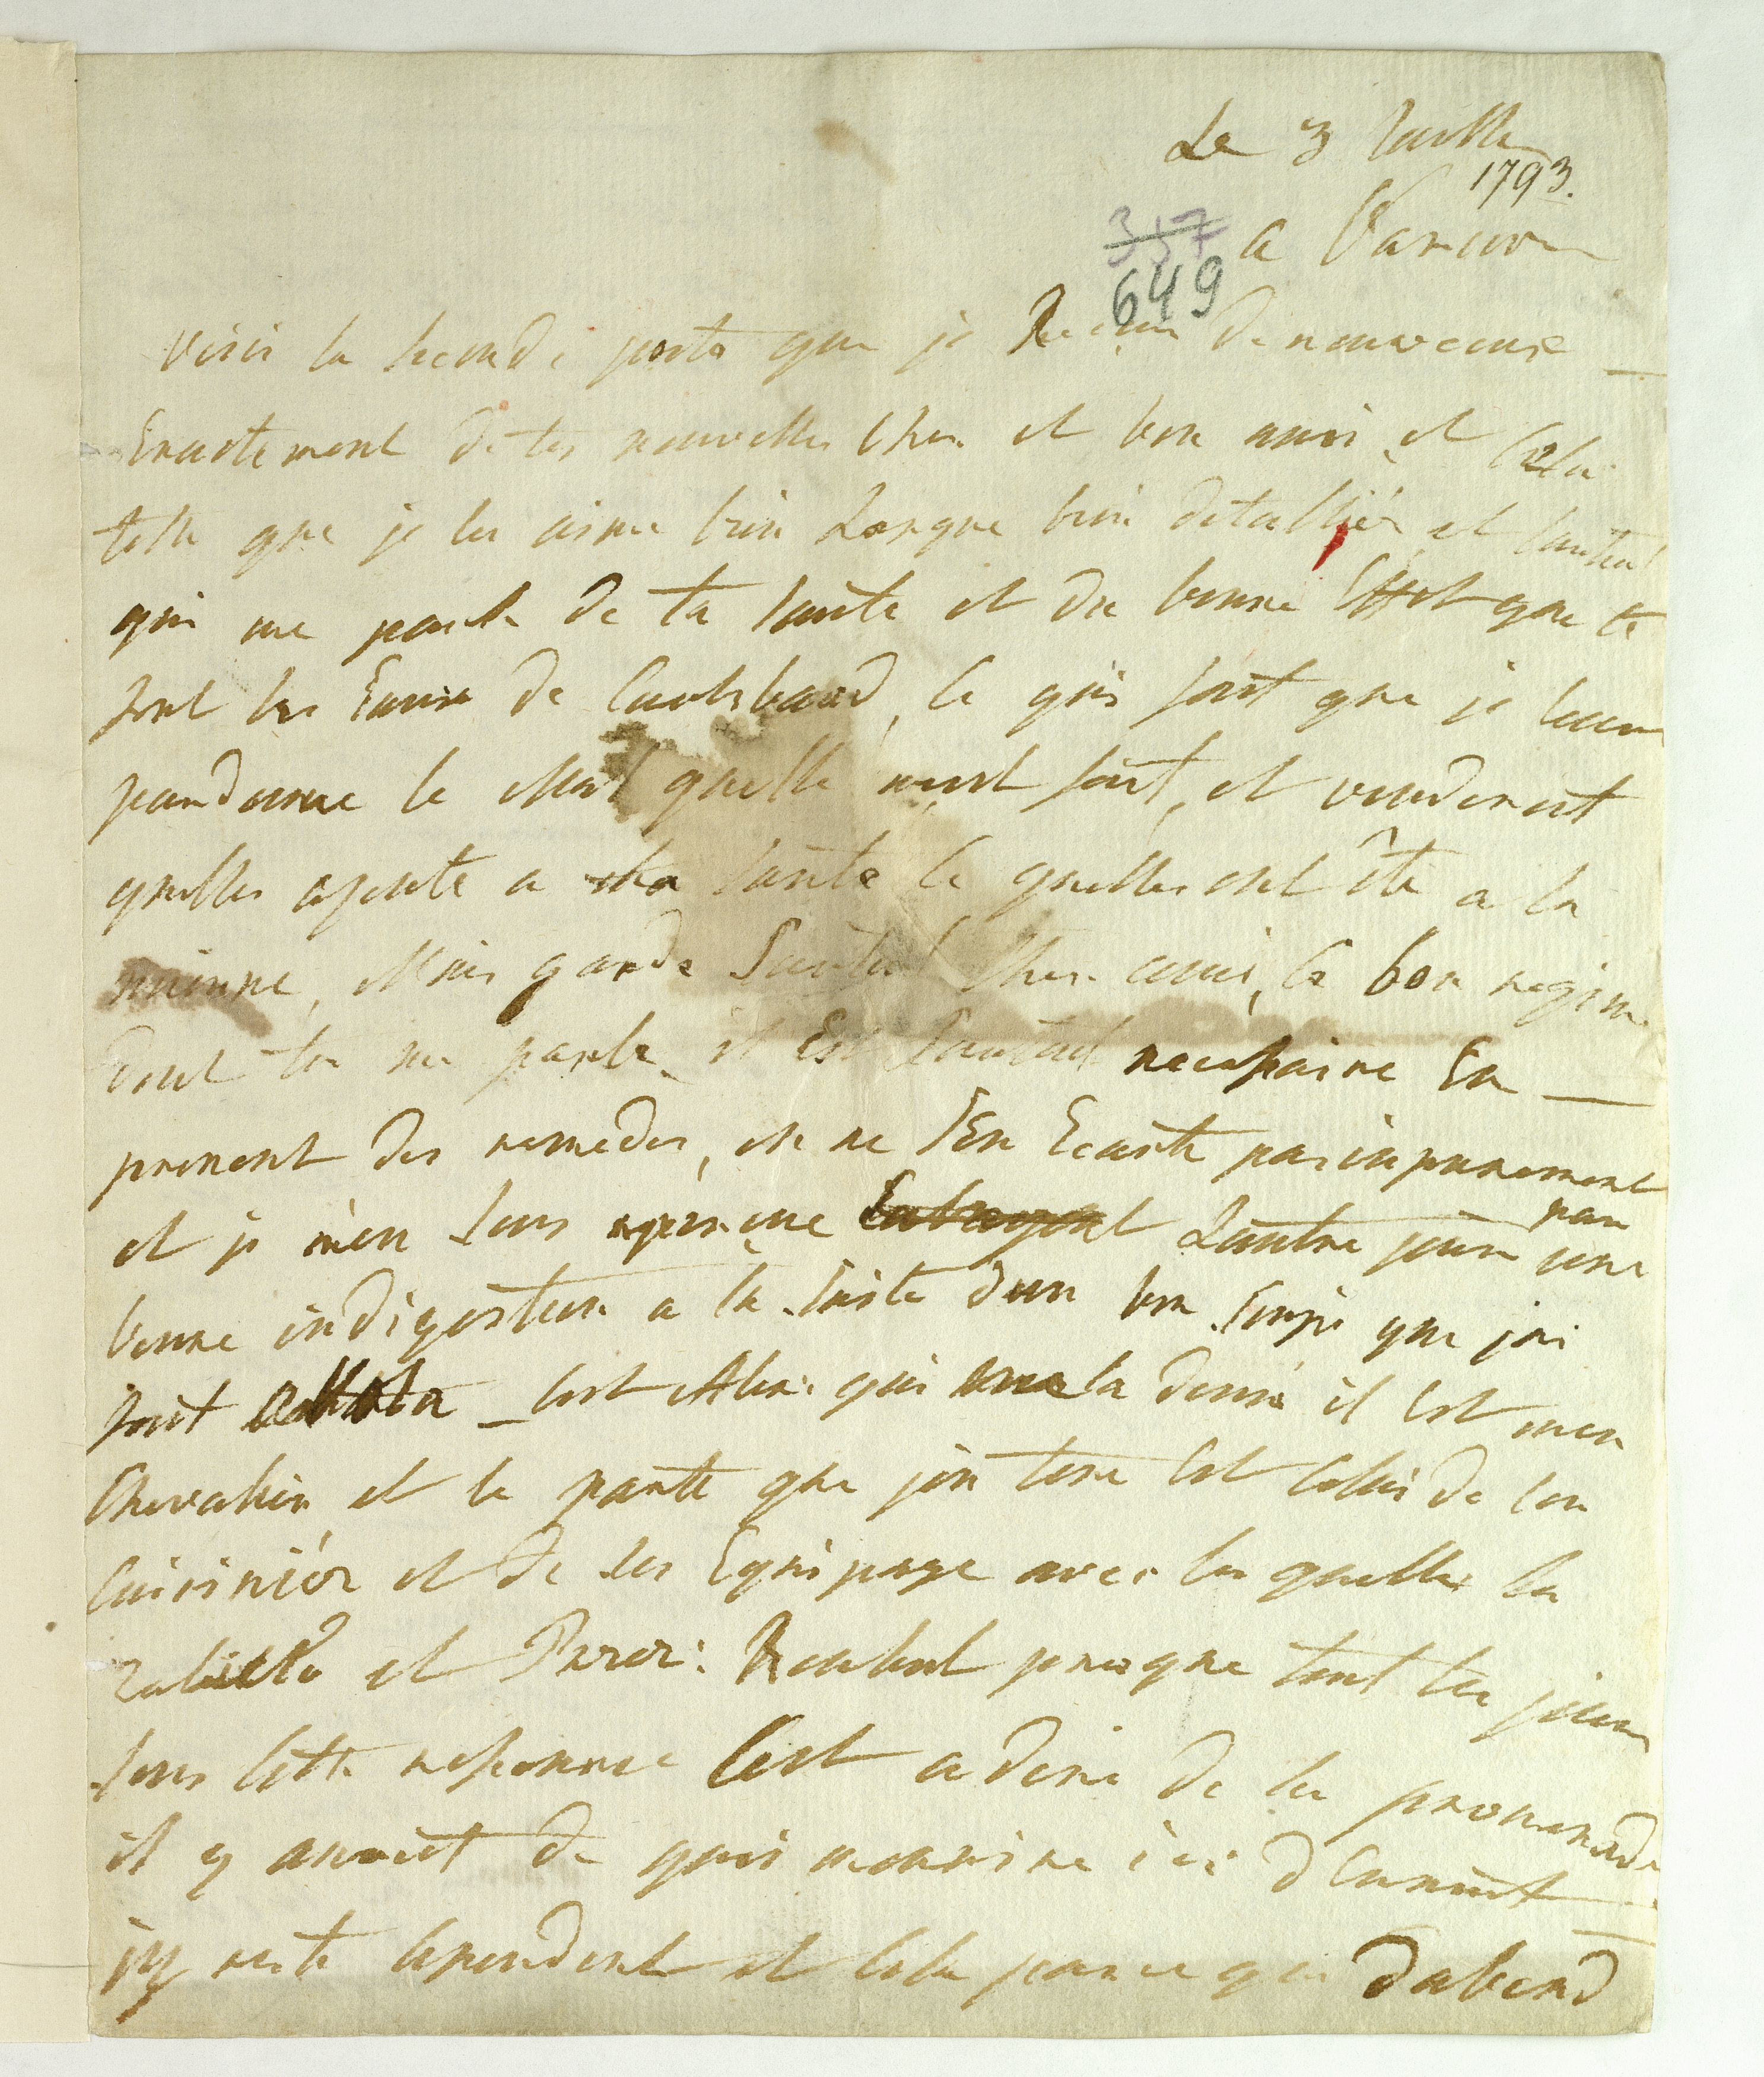 Le 3 Juillе
1793.
357
649
a Varsovi
voici la seconde poste que je Reçus de nouveaux
Exactement de tes nouvelles cher et bon ami et cela
telle que je les aime bien Longue bien detalliér et surtout
qui me parle de ta santé et du bonne Effet que te
font les Eaux de Carlsbaad, ce qui fait que je leur
pardonne le Mal quelle mont fait, et voudroit
quelles ajoute a ta santé ce quelles ont ôte a la
mienne, Mais garde surtout cher ami, le bon regime
dont tu me parle il Est surtout necessaire En
prenent des remedes, on ne sEn Ecarte pas inpunement
et je m'en suis aperçue Lautre jour par une
bonne indigestion a la suite d'un bon supé que jai
fait cest Alexi qui la donné il Est mon
Chevalier et le partie que jen tire Est celui de son
Cuisinier et de ses Equipage avec les quelle la
Zabiello et Roulent presque tout les jour
sans cette resource Cest a dire de la promenade
il y auroit de quoi mourire ici d Ennuit
jy reste cependent et cela parce que dabord